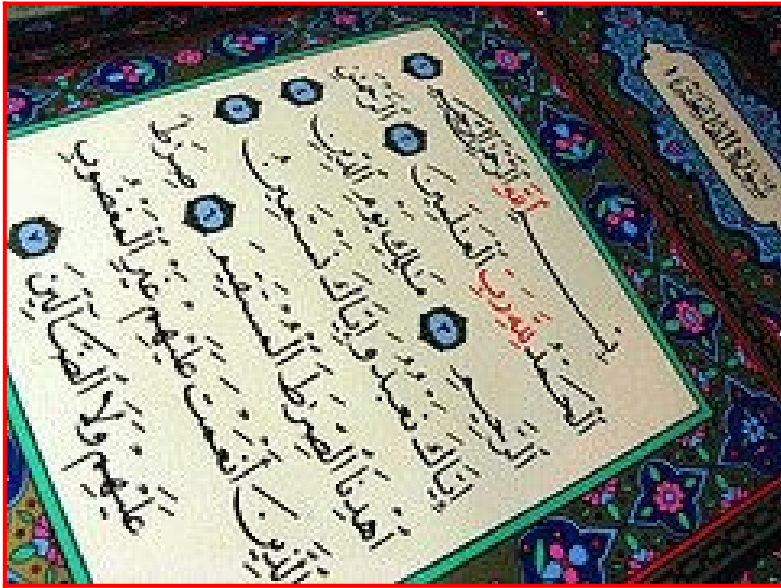 سُورَةُ الْفَاتِحَةِ
بِسْمِ اللَّهِ الرَّحْمَٰنِ الرَّحِيمِ ١
الْحَمْدُ لِلَّهِ رَبِّ الْعَٰلَمِينَ ٢ الرَّحْمَٰنِ
الرَّحِيمِ ٣ مَٰلِكِ يَوْمِ الدِّينِ ٤
إِيَّاكَ نَعْبُدُ وَإِيَّاكَ نَسْتَعِينُ ٥
اهْدِنَا الصِّرَٰطَ الْمُسْتَقِيمَ ٦ صِرَٰطَ
الَّذِينَ أَنْعَمْتَ عَلَيْهِمْ غَيْرِ الْمَغْضُوبِ
عَلَيْهِمْ وَلَا الضَّآلِّينَ ٧